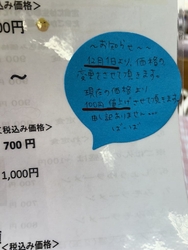 税込み価格＞
00円
〜お知らせ〜
12月1日より、価格の
変更をさせて頂きます。
現在の価格より
100円値上げさせて頂きます。
申し訳ありません…
〜
＜税込み価格＞
700 円
1,000円
税込み価格＞